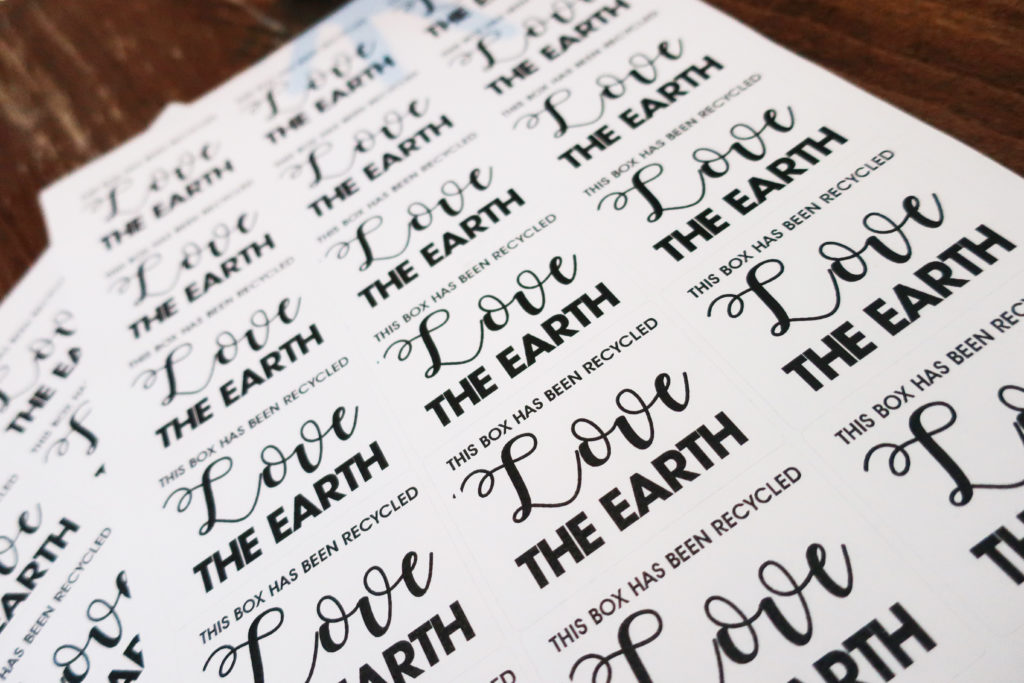 Love
THE EARTH
THIS BOX HAS BEEN RECYCLED
Love
THE EARTH
THIS BOX HAS BEEN RECYCLED
Love
THE EARTH
THIS BOX HAS BEEN RECYCLED
Love
THE EARTH
THIS BOX HAS BEEN RECYCLED
Love
EARTH
Love
THE EARTH
THIS BOX HAS BEEN RECYCLED
Love
THE EARTH
THIS BOX HAS BEEN RECYCLED
Love
THE EARTH
THIS BOX HAS BEEN RECYCLED
Love
THE EARTH
THIS BOX HAS BEEN RECYCLED
Love
THE EARTH
THIS BOX HAS BEEN RECYCLED
Love
THE EARTH
Love
THE EARTH
THIS BOX HAS BEEN RECYCLED
Love
THE EARTH
THIS BOX HAS BEEN RECYCLED
Love
THE EARTH
THIS BOX HAS BEEN RECYCLED
Love
THE EARTH
THIS BOX HAS BEEN
Love
THE